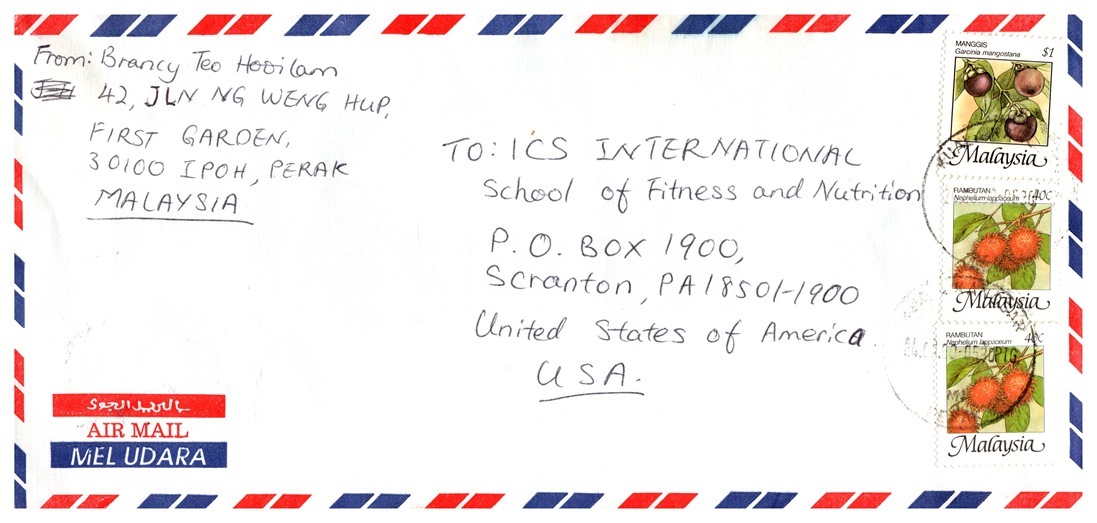 From: Brancy Teo Hooilam
42, JLN NG WENG HUP,
FIRST GARDEN,
30100 IPOH, PERAK
MALAYSIA
TO: ICS INTERNATIONAL
School of Fitness and Nutrition
P.O. BOX 1900,
Scranton, PA18501-1900
United States of America.
USA.
MANGGIS $1
Garcinia mangostana
Malaysia
RAMBUTAN 40c
Nephelium lappaceum
Malaysia
RAMBUTAN 40c
Nephelium lappaceum
Malaysia
AIR MAIL
MEL UDARA